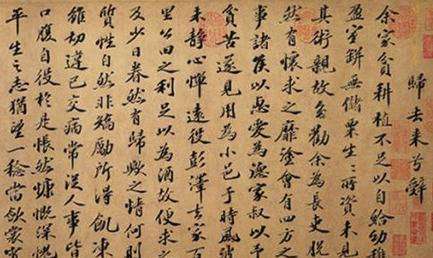 歸去來兮辭
余家貧耕植不足以自給幼稚
盈室缾無儲粟生〻所資未見
其術親故多勸余為長吏脫
然有懷求之靡塗會有四方之
事諸侯以惠愛為德家叔以予
貧苦遂見用為小邑于時風波
未靜心憚遠役彭澤去家百
里公田之利足以為酒故便求之
及少日眷然有歸歟之情何則
質性自然非矯勵所得飢凍
雖切違己交病常從人事皆
口腹自役於是悵然慷慨深愧
平生之志猶望一稔當斂裳宵